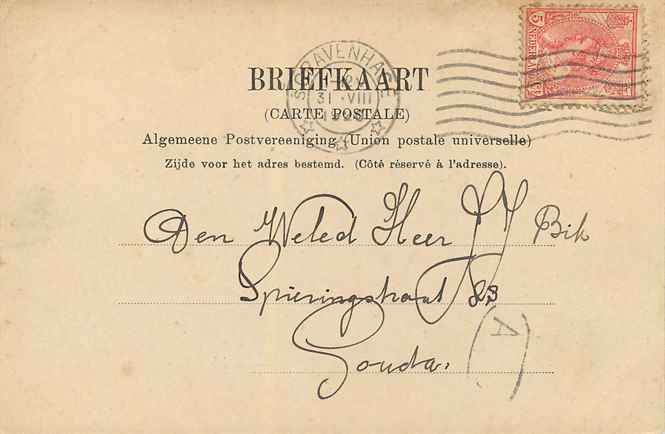 BRIEFKAART
(CARTE POSTALE)
Algemeene Postvereeniging (Union postale universelle)
Zijde voor het adres bestemd. (Côté réservé à l'adresse).
'S GRAVENHAGE
31 VIII
5 NEDERLAND 5
Den Weled Heer JJ Bik
Spieringstraat 83
Gouda.
(A)